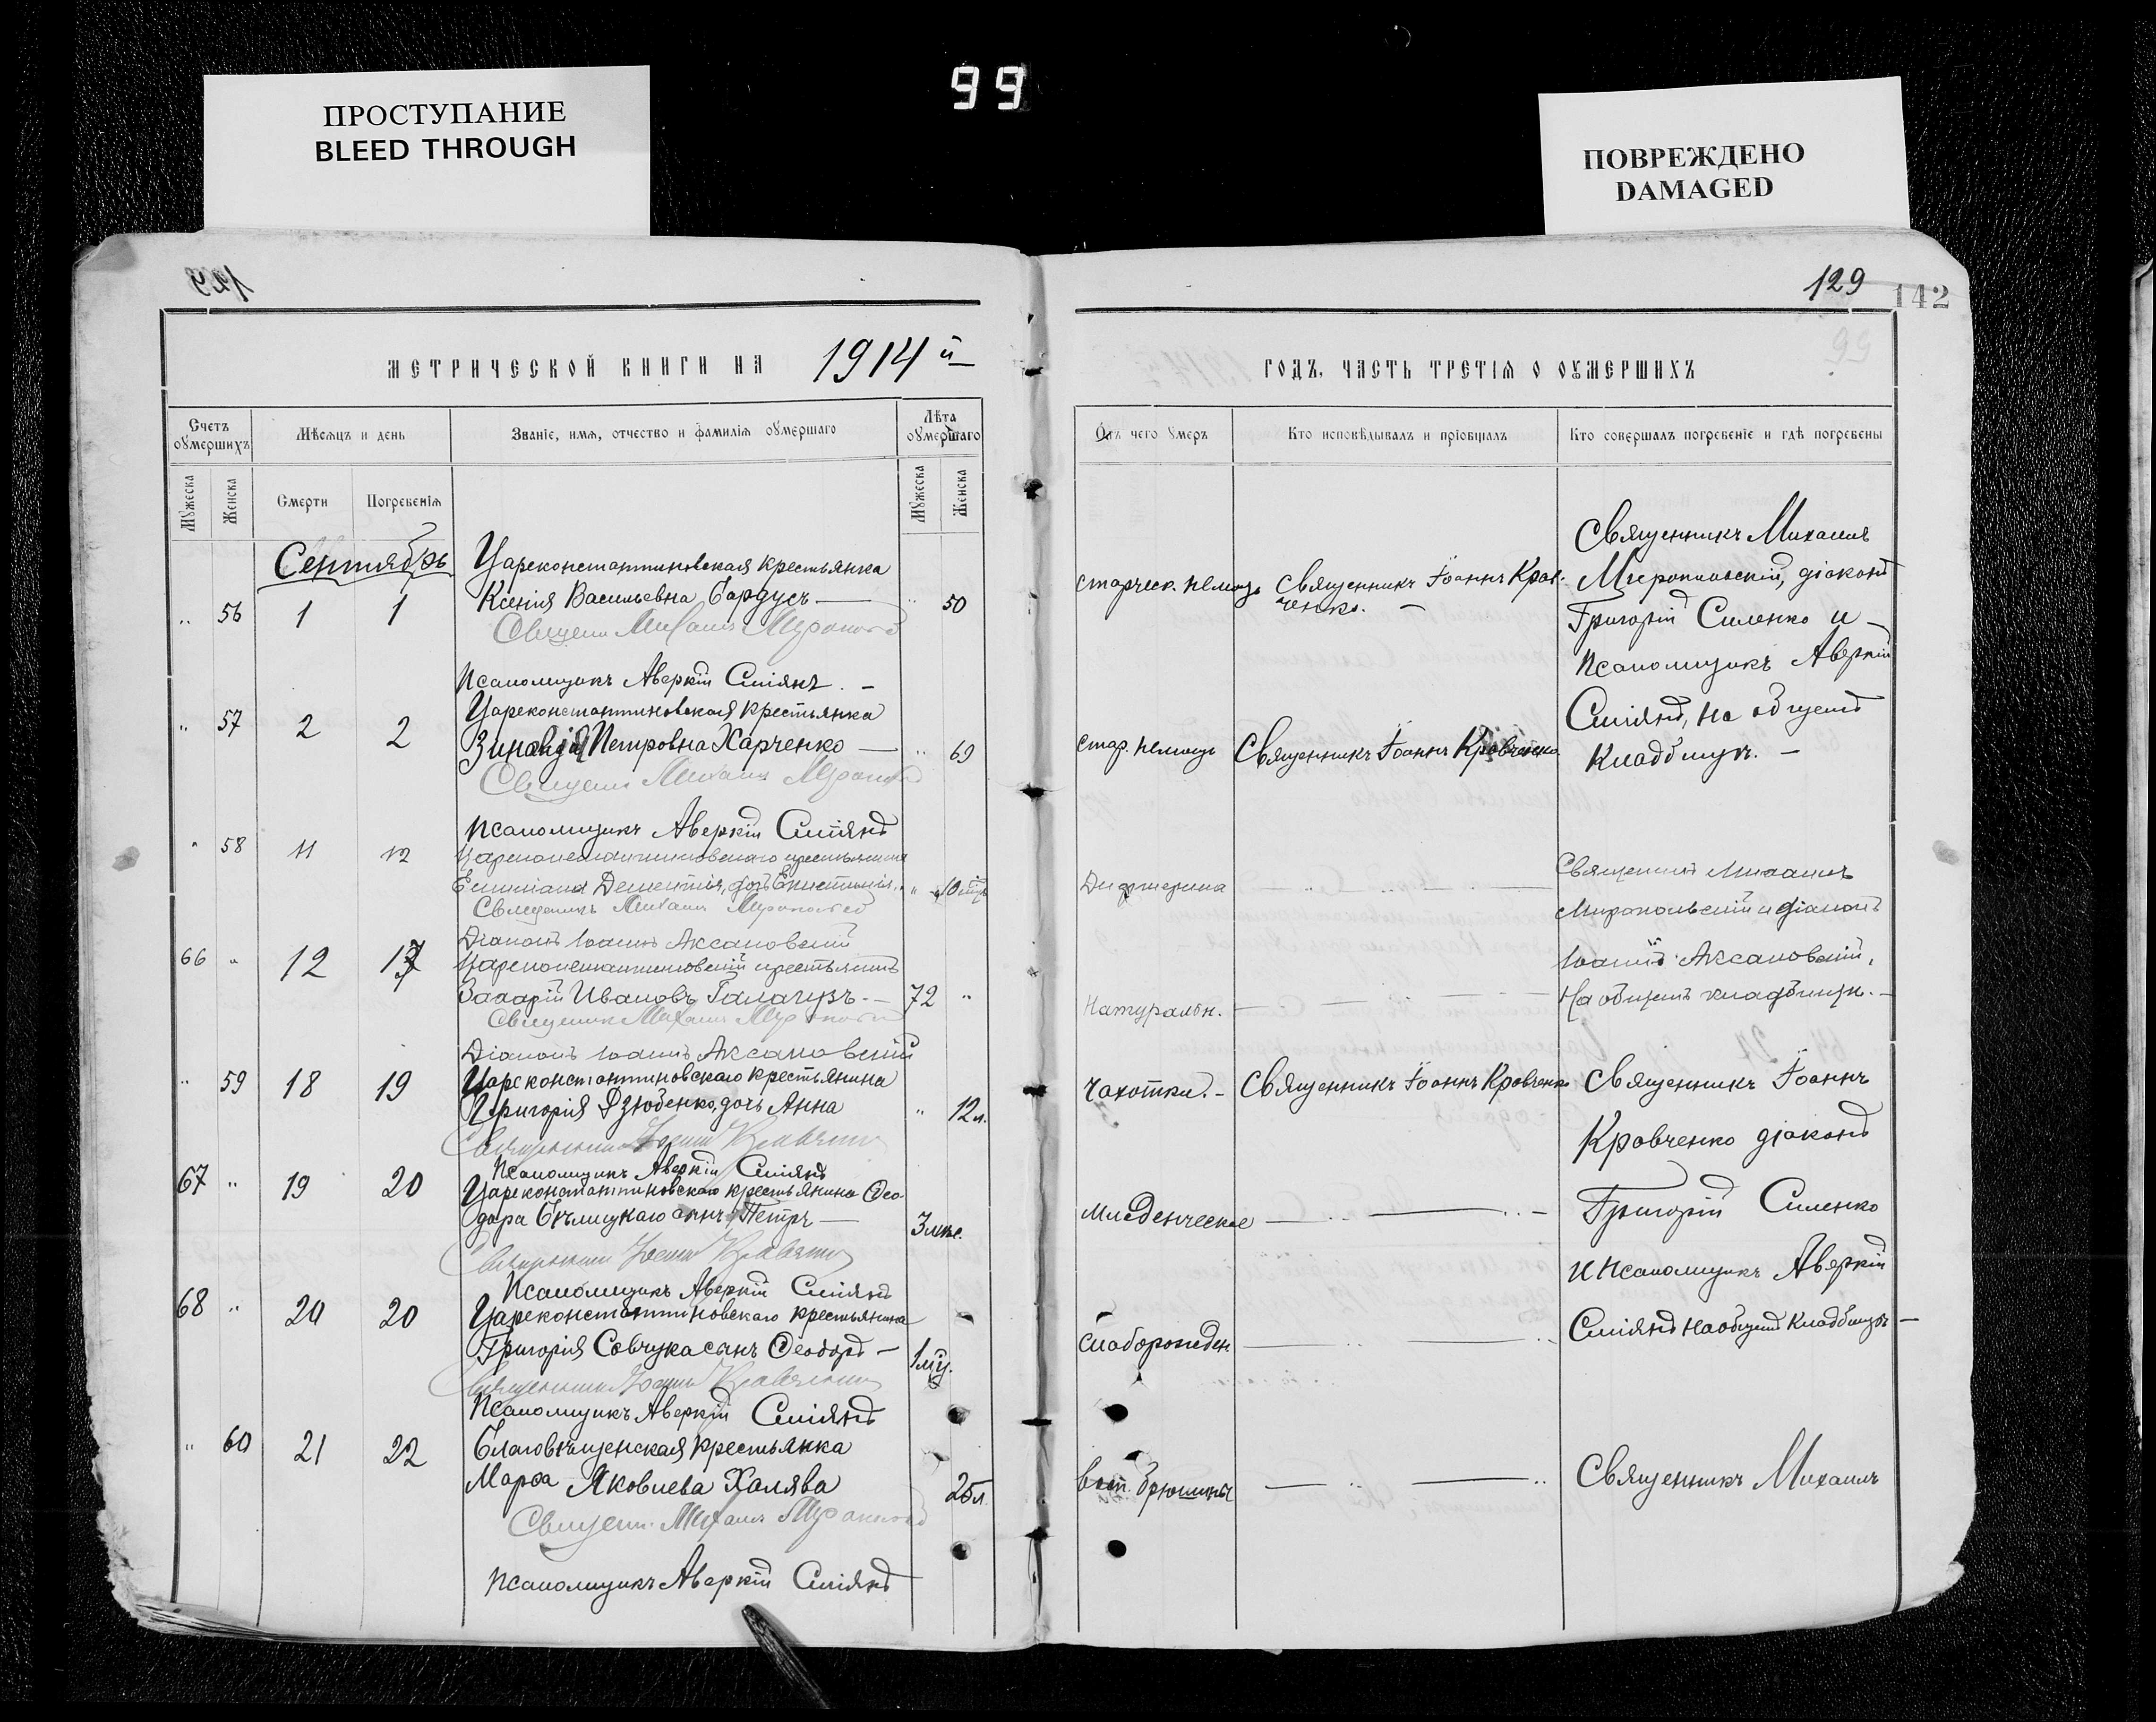 99
ПРОСТУПАНИЕ
BLEED THROUGH
ПОВРЕЖДЕНО
DAMAGED
129
142
МЕТРИЧЕСКОЙ КНИГИ НА 1914 й
Счетъ оумершихъ
Мѣсяцъ и день
Званіе, имя, отчество и фамилія оумершаго
Лѣта оумершаго
Мужеска
Женска
Смерти
Погребенія
Мужеска
Женска
Сентябрь
Цареконстантиновская крестьянка
„ 56 1 1 Ксенія Васильевна Бардусъ — „ 50
Священ Михаилъ
Псаломщикъ Аверкій Сміянъ. —
Цареконстантиновская крестьянка
„ 57 2 2 Зинаида Петровна Харченко — „ 69
Священ Михаилъ
Псаломщикъ Аверкій Сміянъ
„ 58 11 12 Цареконстантиновскаго крестьянина
Дементія, дочь „ 10
Священникъ Михаилъ
Діаконъ Іоаннъ Аксановскій
66 „ 12 13 Цареконстантиновскій крестьянинъ
Захарій Ивановъ Галагузъ. — 72 „
Священник Михаилъ
Діаконъ Іоаннъ Аксановскій
„ 59 18 19 Цареконстантиновскаго крестьянина
Григорія Дзюбенко, дочь Анна „ 12 л.
Священникъ Іоаннъ Кравченко
Псаломщикъ Аверкій Сміянъ
67 „ 19 20 Цареконстантиновскаго крестьянина Ѳео-
дора Бѣлицкаго сынъ Петръ — 3
Священникъ Іоаннъ Кравченко
Псаломщикъ Аверкій Сміянъ
68 „ 20 20 Цареконстантиновскаго крестьянина
Григорія Савчука сынъ Ѳеодоръ —
Священникъ Іоаннъ Кравченко
Псаломщикъ Аверкій Сміянъ
„ 60 21 22 Благовѣщенская крестьянка
Марѳа Яковлева Халява 25 л
Священ. Михаилъ
Псаломщикъ Аверкій Сміянъ
ГОДЪ, ЧАСТЬ ТРЕТІЯ О ОУМЕРШИХЪ
Отъ чего умеръ
Кто исповѣдывалъ и пріобщалъ
Кто совершалъ погребеніе и гдѣ погребены
старческ. немощь Священникъ Іоаннъ Крав-
ченко. —
Священникъ Михаилъ
Миропольскій, діаконъ
Григорій Силенко и —
псаломщикъ Аверкій
Сміянъ, на общемъ
кладбищѣ. —
стар. немощь Священникъ Іоаннъ Кравченко
Дифтерита
Священникъ Михаилъ
Миропольскій и діаконъ
Іоаннъ Аксановскій,
На общемъ кладбищѣ. —
Натуральн.
чахотки. — Священникъ Іоаннъ Кравченко
Священникъ Іоаннъ
Кравченко діаконъ
Григорій Силенко
и псаломщикъ Аверкій
Сміянъ на общемъ кладбищѣ —
младенческое
слаборожден
восп. брюшины
Священникъ Михаилъ